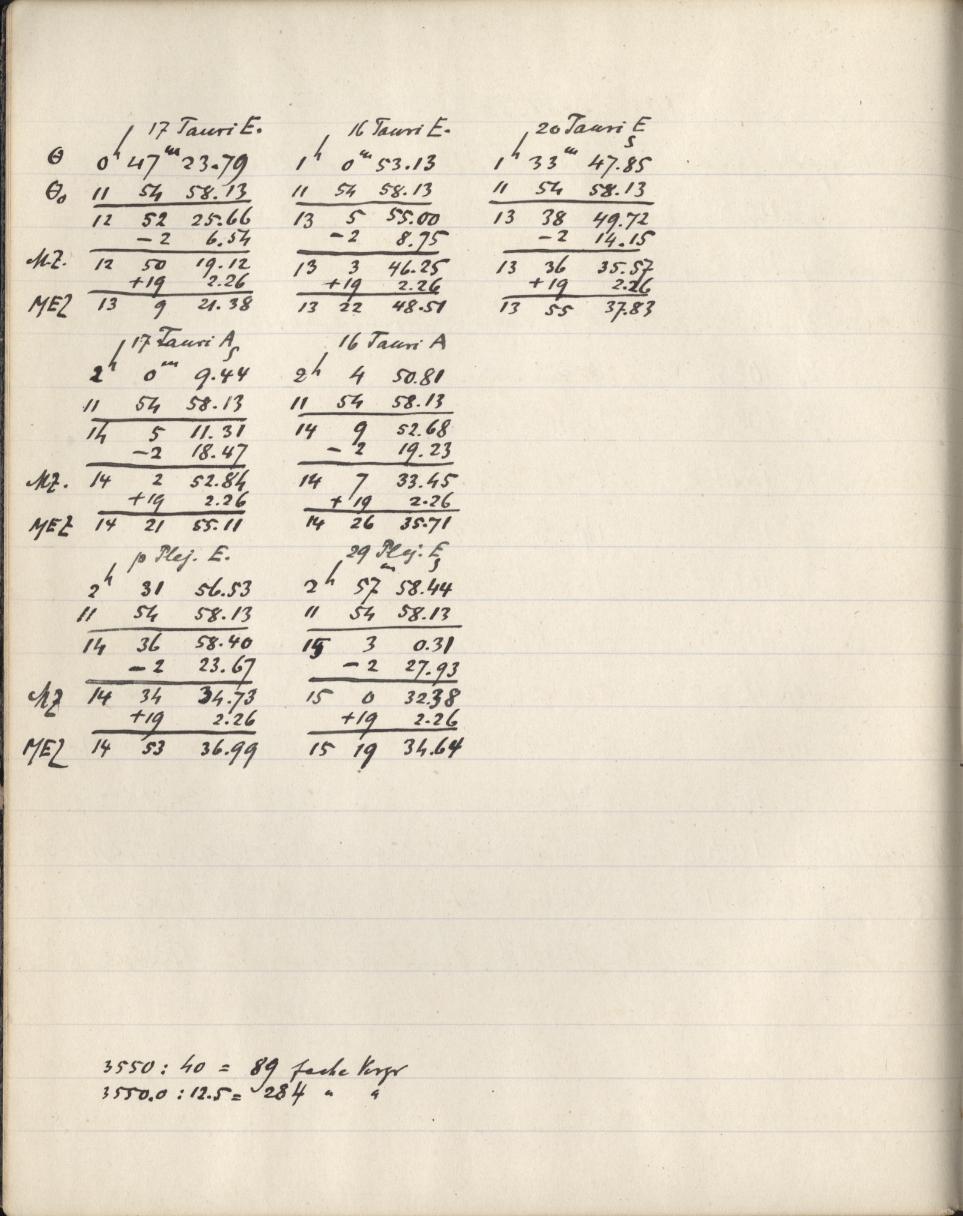 17 Tauri E. 16 Tauri E. 20 Tauri E
Θ 0h 47m 23.79 1h 0m 53.13 1h 33m 47.85s
Θ₀ 11 54 58.13 11 54 58.13 11 54 58.13
12 52 25.66 13 5 55.00 13 38 49.72
-2 6.54 -2 8.75 -2 14.15
M.Z. 12 50 19.12 13 3 46.25 13 36 35.57
+19 2.26 +19 2.26 +19 2.26
MEZ 13 9 21.38 13 22 48.51 13 55 37.83
17 Tauri A 16 Tauri A
2h 0m 9.44s 2h 4 50.81
11 54 58.13 11 54 58.13
14 5 11.31 14 9 52.68
-2 18.47 -2 19.23
MZ. 14 2 52.84 14 7 33.45
+19 2.26 +19 2.26
MEZ 14 21 55.11 14 26 35.71
p Plej. E. 29 Plej. E
2h 31 56.53 2h 57m 58.44s
11 54 58.13 11 54 58.13
14 36 58.40 15 3 0.31
-2 23.67 -2 27.93
MZ 14 34 34.73 15 0 32.38
+19 2.26 +19 2.26
MEZ 14 53 36.99 15 19 34.64
3550 : 40 = 89 fache Vergr
3550.0 : 12.5 = 284 " "